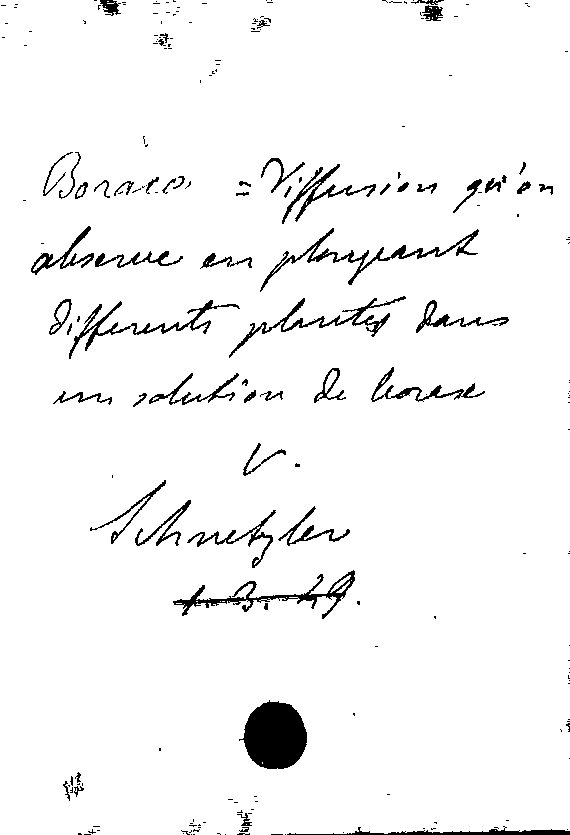 Borax = Diffusion qu'on
observe en plongeant
differents plantes dans
un solution de borax
V.
Schnetzler
1. 3. 49.